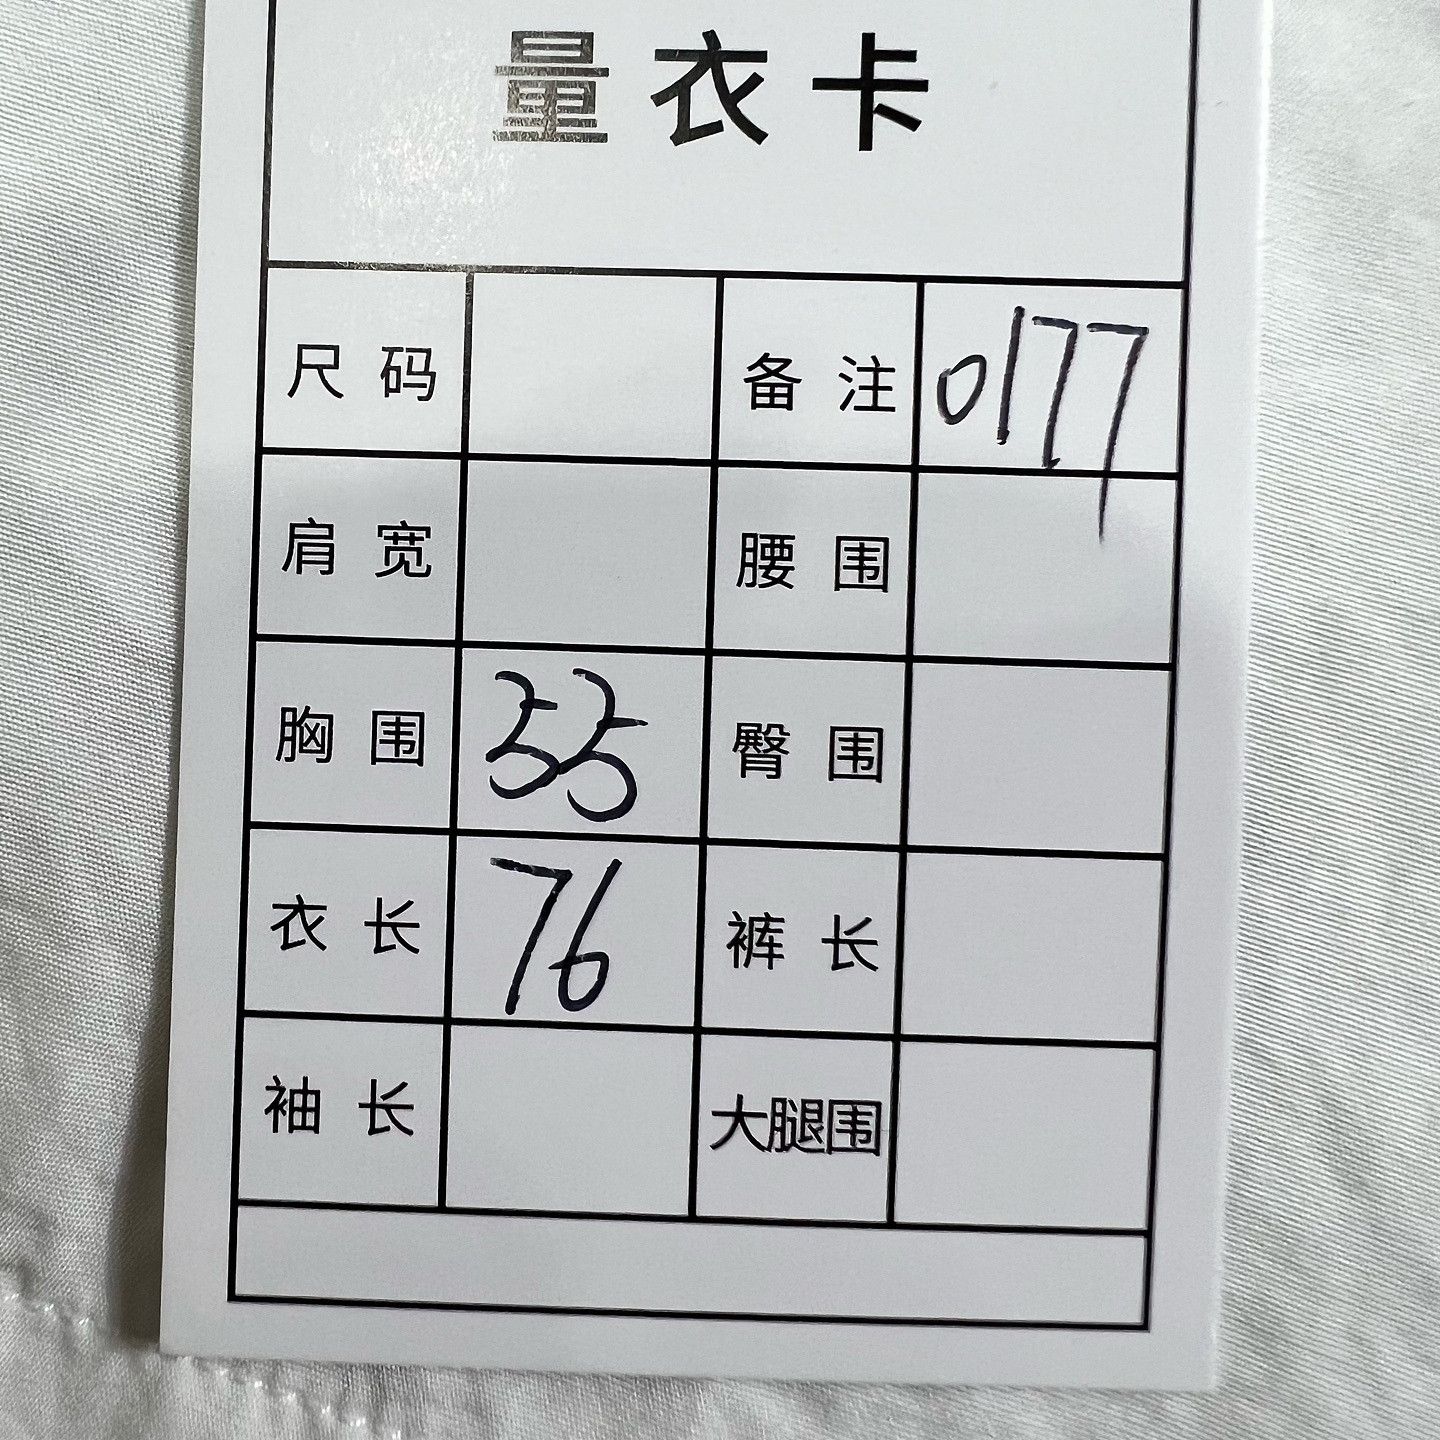 量衣卡
尺码 备注 0177
肩宽 腰围
胸围 55 臀围
衣长 76 裤长
袖长 大腿围